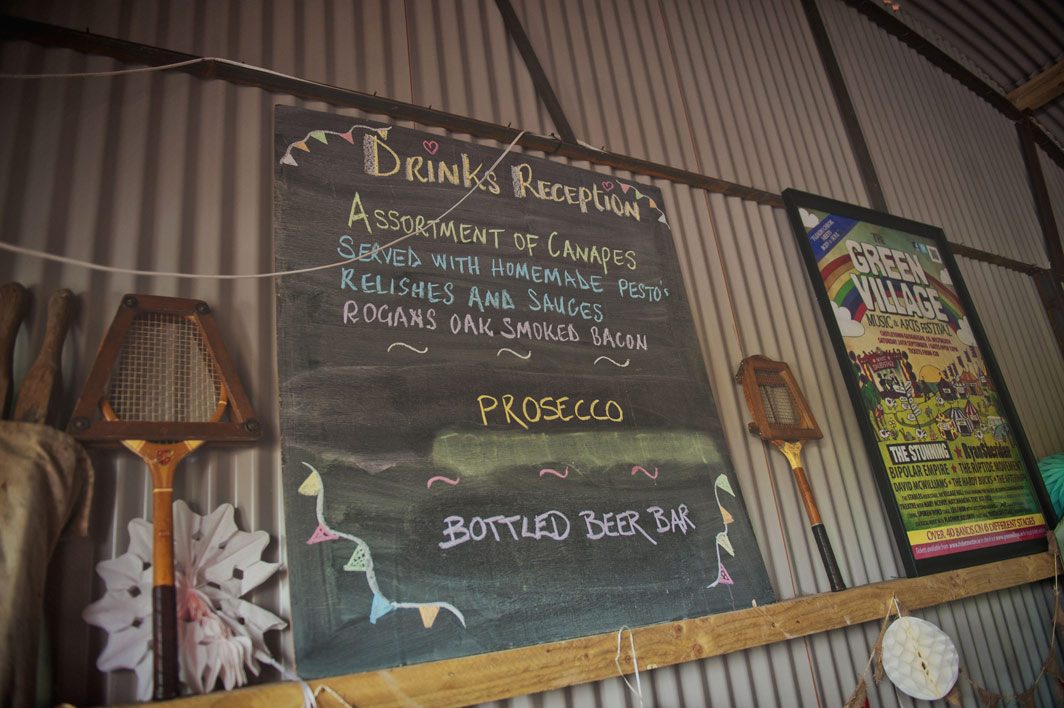 DRINKS RECEPTION
ASSORTMENT OF CANAPES
SERVED WITH HOMEMADE PESTO'S
RELISHES AND SAUCES
ROGANS OAK SMOKED BACON
PROSECCO
BOTTLED BEER BAR
THE
GREEN
VILLAGE
MUSIC & ARTS FESTIVAL
THE STUNNING
RyanSheridan
BIPOLAR EMPIRE ★ THE RIPTIDE MOVEMENT
DAVID MCWILLIAMS ★ THE HARDY BUCKS ★ THE
OVER 40 BANDS ON 6 DIFFERENT STAGES